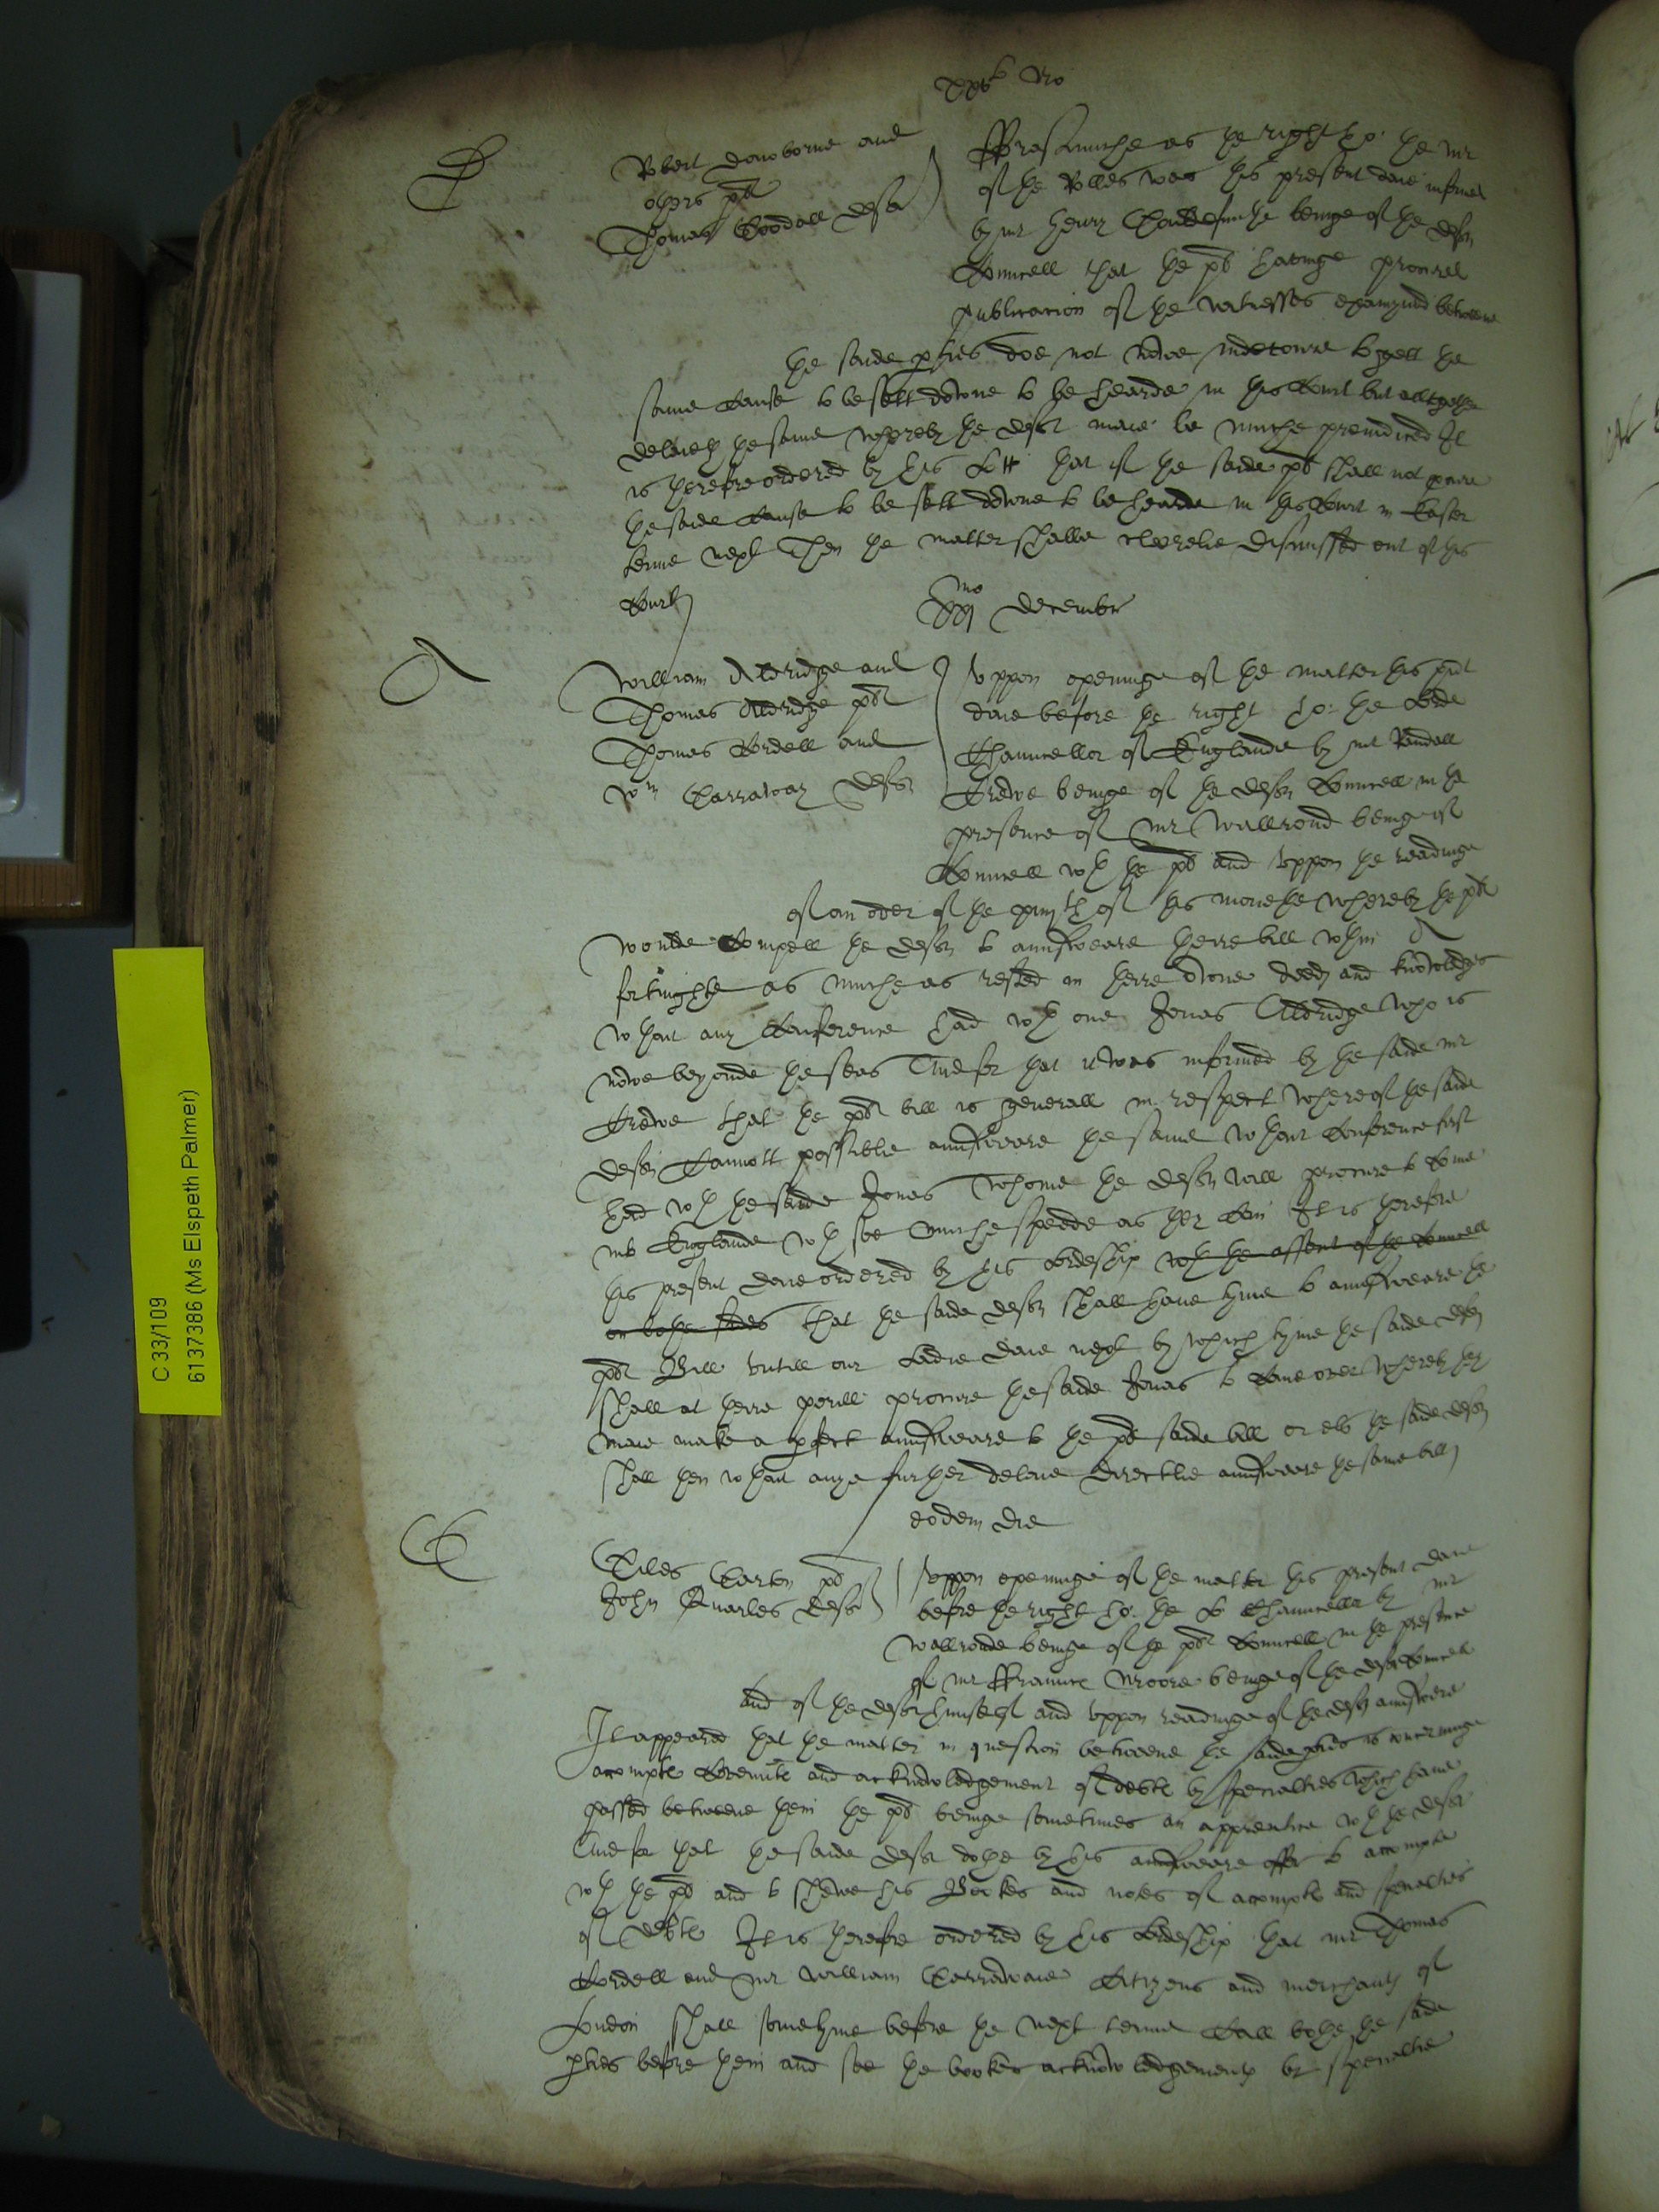 Robert Dawborne and
others pl
Thomas Goodall deft
Fforasmuche as the right ho: the mr
of the Rolles was this present daie informed
by mr Henry beinge of the defts
Councell that the pl havinge procured
publicacion of the witnesses examyned betweene
the saide parties doe not nowe indevour to gett the
same cause to be sett downe to be hearde in this Court but alltogether
delaieth the same whereby the deft maie be muche preiudiced It
is therefore ordered by his that if the saide pl shall not procure
the saide cause to be sett downe to be hearde in this Court in Easter
terme next Then the matter shalbe clearelie dismissed out of this
Court
xxjmo Decembr
William Aldridge and
Thomas Aldridge pls
Thomas Cordell and
Wm Garraway defts
Uppon openinge of the matter this pnt
daie before the right ho: the Lorde
Chauncellor of Englande by mr Randall
Crewe beinge of the defts Councell in the
presence of mr Wallrond beinge of
Councell wth the pl and uppon the readinge
of an order of the xiiijth of this monethe whereby the pls
woulde compell the defts to aunsweare theire bill wthin A
fortnighte as muche as rested in theire owne deeds and knowledges
wthout any Conference had wth one Jonas Aldridge who is
nowe beyonde the seas And for that it was informed by the saide mr
Crewe that the pls bill is generall in respect whereof the saide
defts cannott possiblie aunsweare the same wthout Conference first
had wth the saide Jonas whome the defts will procure to come
into Englande wth soe muche speede as they can It is therefore
this present daie ordered by his Lordeship wth the assent of the Councell
on bothe sides that the saide defts shall have tyme to aunsweare the
pls Bill untill our Ladie daie next by which tyme the saide defts
shall at theire perill procure the saide Jonas to come over whereby they
maie make a perfect aunsweare to the pls saide bill or els the saide defts
shall then wthout anye further delaie directlie aunsweare the same bill
eodem die
Giles pl
John Quarles deft
Uppon openinge of the matter this present daie
before the right ho: the L Chauncellor by mr
Wallronde beinge of the pls Councell in the presence
of mr Ffraunce Moore beinge of the defts Councell
and of the deft himself and uppon readinge of the defts aunsweare
It appeared that the matter in question betweene the saide parties is concerninge
accompts and acknowledgement of debts by specialties which have
passed betweene them the pl beinge sometimes an apprentice wth the deft
And for that the saide deft dothe by his aunsweare offer to accompte
wth the pl and to shewe his Bookes and notes of accompts and specialties
of debte It is therefore ordered by his Lordeship that mr Thomas
Cordell and mr William Garrawaie Citizens and merchants of
London shall sometyme before the next terme call bothe the saide
parties before them and see the bookes acknowledgements by specialtie
C 33/109
6137386 (Ms Elspeth Palmer)